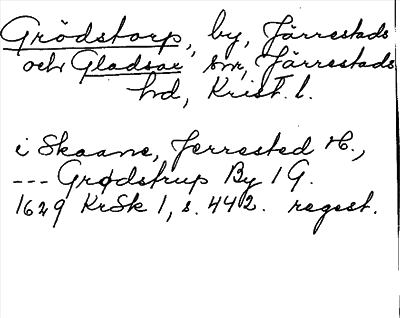 Grödstorp, by, Järrestads
och Gladsax sn, Järrestads
hd, Krist. l.
i Skaane, Jerrested H.,
--- Grødstrup By 1 G.
1629 KrSk 1, s. 442. regest.